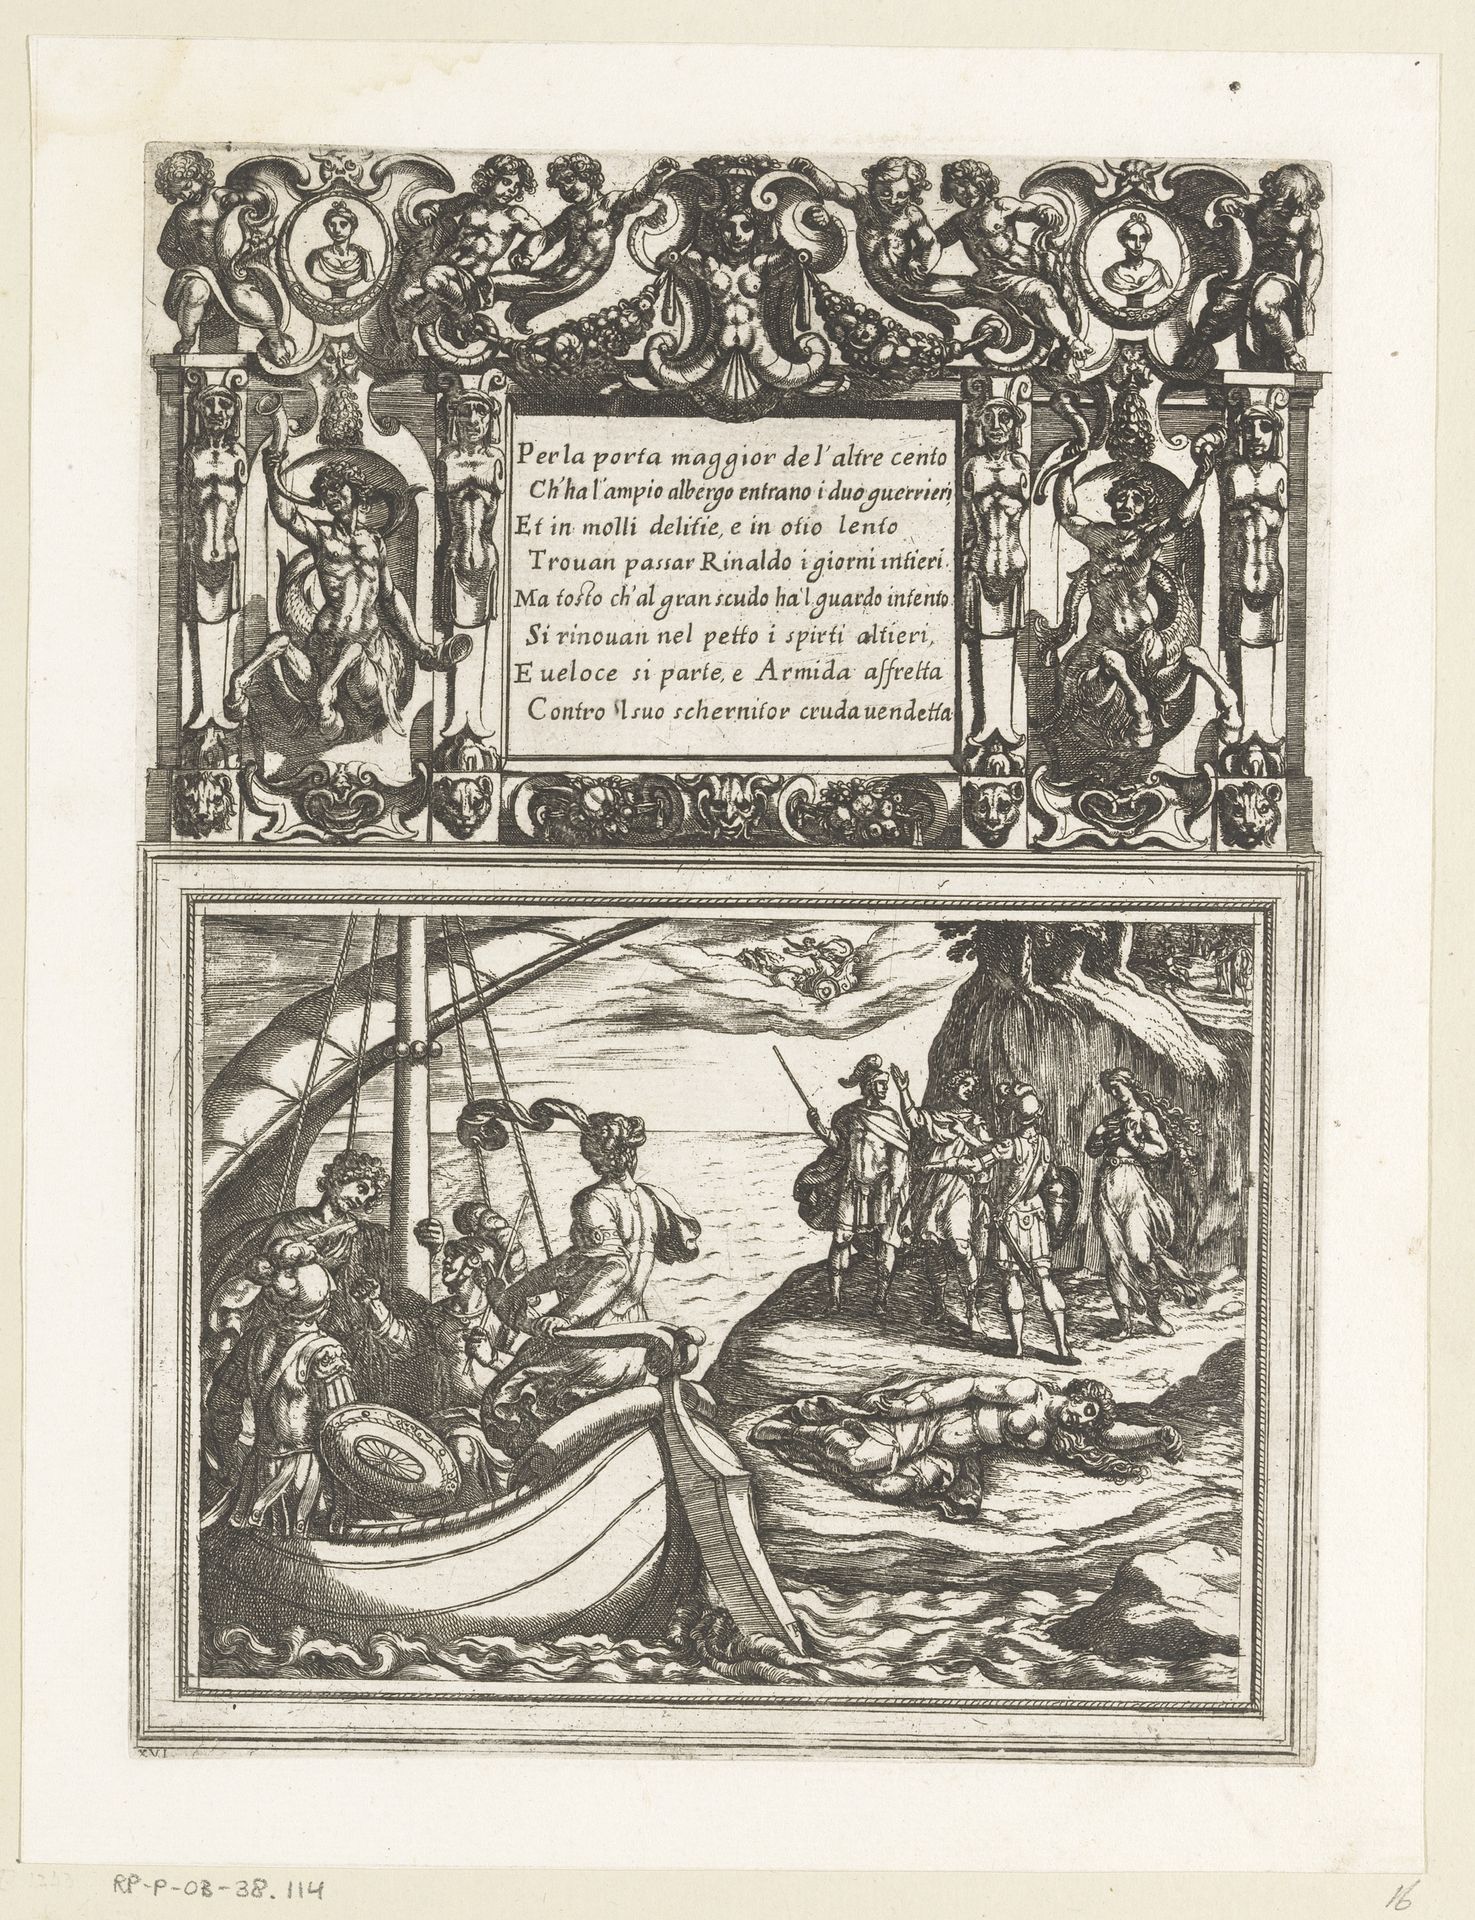 Per la porta maggior de l'altre cento
Ch'ha l'ampio albergo entrano i duo guerrieri,
Et in molli delitie, e in otio lento
Trouan passar Rinaldo i giorni intieri.
Ma tosto ch'al gran scudo ha'l guardo intento
Si rinouan nel petto i spirti altieri,
E ueloce si parte, e Armida affretta
Contro 'l suo schernitor cruda uendetta
XVI
RP-P-OB-38.114
16